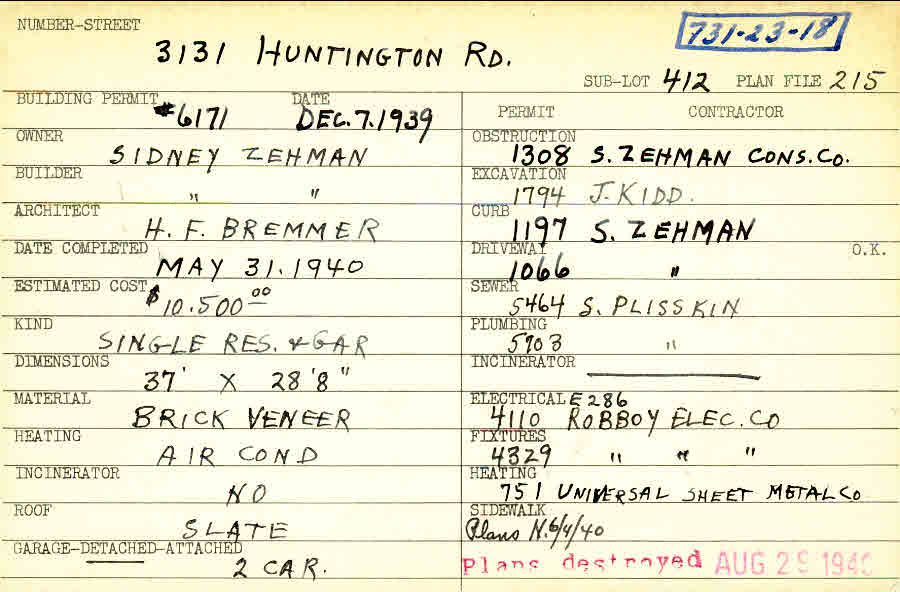 NUMBER-STREET
3131 HUNTINGTON RD.
731-23-18
SUB-LOT 412 PLAN FILE 215
BUILDING PERMIT #6171 DATE DEC. 7. 1939
OWNER SIDNEY ZEHMAN
BUILDER " "
ARCHITECT H. F. BREMMER
DATE COMPLETED MAY 31. 1940
ESTIMATED COST $10.500 00
KIND SINGLE RES. & GAR
DIMENSIONS 37' X 28'8"
MATERIAL BRICK VENEER
HEATING AIR COND
INCINERATOR NO
ROOF SLATE
GARAGE-DETACHED-ATTACHED 2 CAR.
PERMIT CONTRACTOR
OBSTRUCTION 1308 S. ZEHMAN CONS. CO.
EXCAVATION 1794 J. KIDD.
CURB 1197 S. ZEHMAN
DRIVEWAY 1066 " O.K.
SEWER 5464 S. PLISSKIN
PLUMBING 5703 "
INCINERATOR
ELECTRICAL E286
4110 ROBBOY ELEC. CO
FIXTURES 4329 " " "
HEATING 751 UNIVERSAL SHEET METAL CO
SIDEWALK
Plans N. 6/4/40
Plans destroyed AUG 29 1940